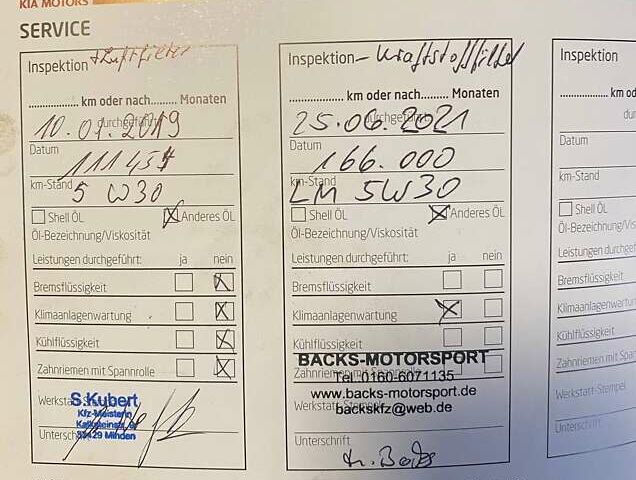 KIA MOTORS
SERVICE
Inspektion + Luftfilter
km oder nach Monaten
durchgeführt
10.01.2019
Datum
km-Stand
5 W30
Shell ÖL Anderes ÖL
Öl-Bezeichnung/Viskosität
Leistungen durchgeführt: ja nein
Bremsflüssigkeit
Klimaanlagenwartung
Kühlflüssigkeit
Zahnriemen mit Spannrolle
S.Kubert
Kfz-Meisterin
32429 Minden
Unterschrift
Inspektion - Kraftstofffilter
km oder nach Monaten
durchgeführt
25.06.2021
Datum
166.000
km-Stand
LM 5W30
Shell ÖL Anderes ÖL
Öl-Bezeichnung/Viskosität
Leistungen durchgeführt: ja nein
Bremsflüssigkeit
Klimaanlagenwartung
Kühlflüssigkeit
BACKS-MOTORSPORT
Zahnriemen mit Spannrolle
Tel.:0160-6071135
www.backs-motorsport.de
backskfz@web.de
Unterschrift
Inspektion
km oder
Datum
km-Stand
Shell ÖL
Öl-Bezeichnung/Vis
Leistungen durchgefü
Bremsflüssigkeit
Klimaanlagenwartung
Kühlflüssigkeit
Zahnriemen mit Spann
Werkstatt-Stempel
Unterschrift